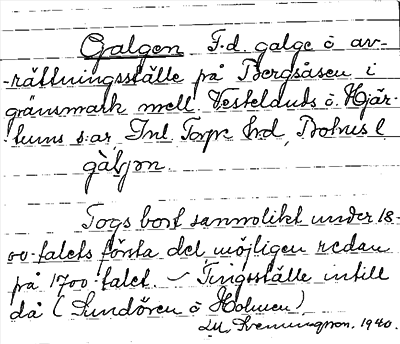 Galgen F.d. galge o av-
-rättningsställe på Bergsåsen i
gränsmark mell. Vesterlands o. Hjär-
tums s:ar, Inl. Torpe hd, Bohus l.
gàljən.
Togs bort sannolikt under 18-
00-talets första del möjligen redan
på 1700-talet. – Tingsställe intill
då (Sundören o Holmen)
1940.